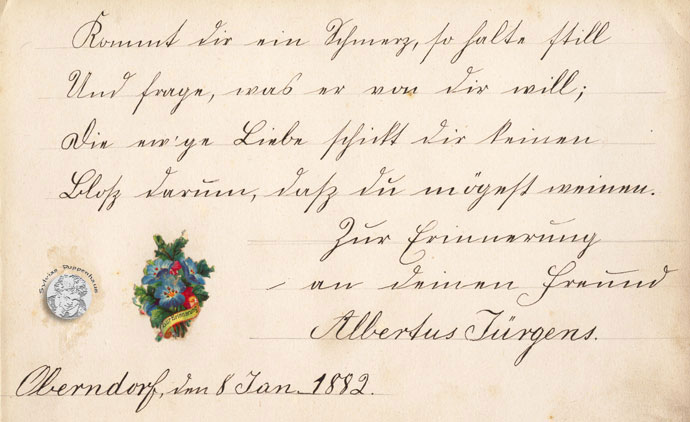 Kommt dir ein Schmerz, so halte still
Und frage, was er von dir will;
Die ew'ge Liebe schickt dir keinen
Blosz darum, dasz du mögest weinen.
Zur Erinnerung
an deinen Freund
Albertus Jürgens.
Sylvias Puppenhaus
Oberndorf, den 8 Jan. 1882.